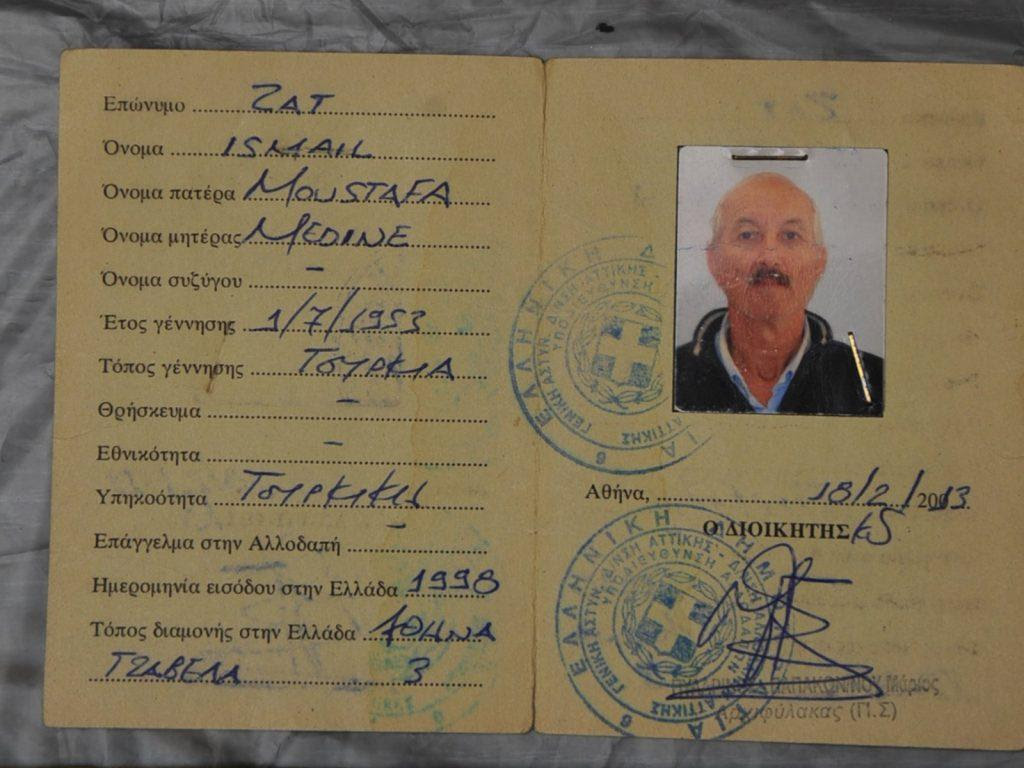 Επώνυμο ZAT
Όνομα ISMAIL
Όνομα πατέρα MOUSTAFA
Όνομα μητέρας MEDINE
Όνομα συζύγου –
Έτος γέννησης 1/7/1953
Τόπος γέννησης ΤΟΥΡΚΙΑ
Θρήσκευμα –
Εθνικότητα –
Υπηκοότητα ΤΟΥΡΚΙΚΗ
Επάγγελμα στην Αλλοδαπή –
Ημερομηνία εισόδου στην Ελλάδα 1998
Τόπος διαμονής στην Ελλάδα ΑΘΗΝΑ
ΤΖΑΒΕΛΑ 3
ΕΛΛΗΝΙΚΗ Δ
ΓΕΝΙΚΗ ΑΣΤΥΝ. Δ/ΝΣΗ ΑΤΤΙΚΗΣ
ΥΠΟΔΙΕΥΘΥΝΣΗ
6
Αθήνα, 18/2/2013
Ο ΔΙΟΙΚΗΤΗΣ
ΕΛΛΗΝΙΚΗ ΔΗΜ
ΓΕΝΙΚΗ ΑΣΤΥΝ. Δ/ΝΣΗ ΑΤΤΙΚΗΣ
ΥΠΟΔΙΕΥΘΥΝΣΗ
6
Μάριος
Αρχιφύλακας (Π.Σ)